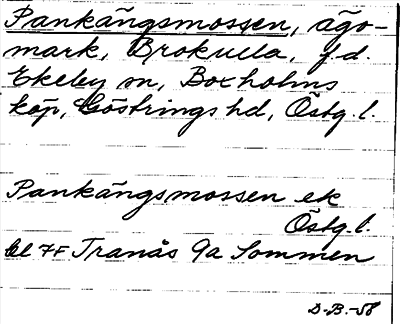 Pankängsmossen, ägo-
mark, Brokulla, f.d.
Ekeby sn, Boxholms
köp, Göstrings hd, Östg.l.
Pankängsmossen ek
Östg.l.
bl 7F Tranås 9a Sommen
D-B.-58